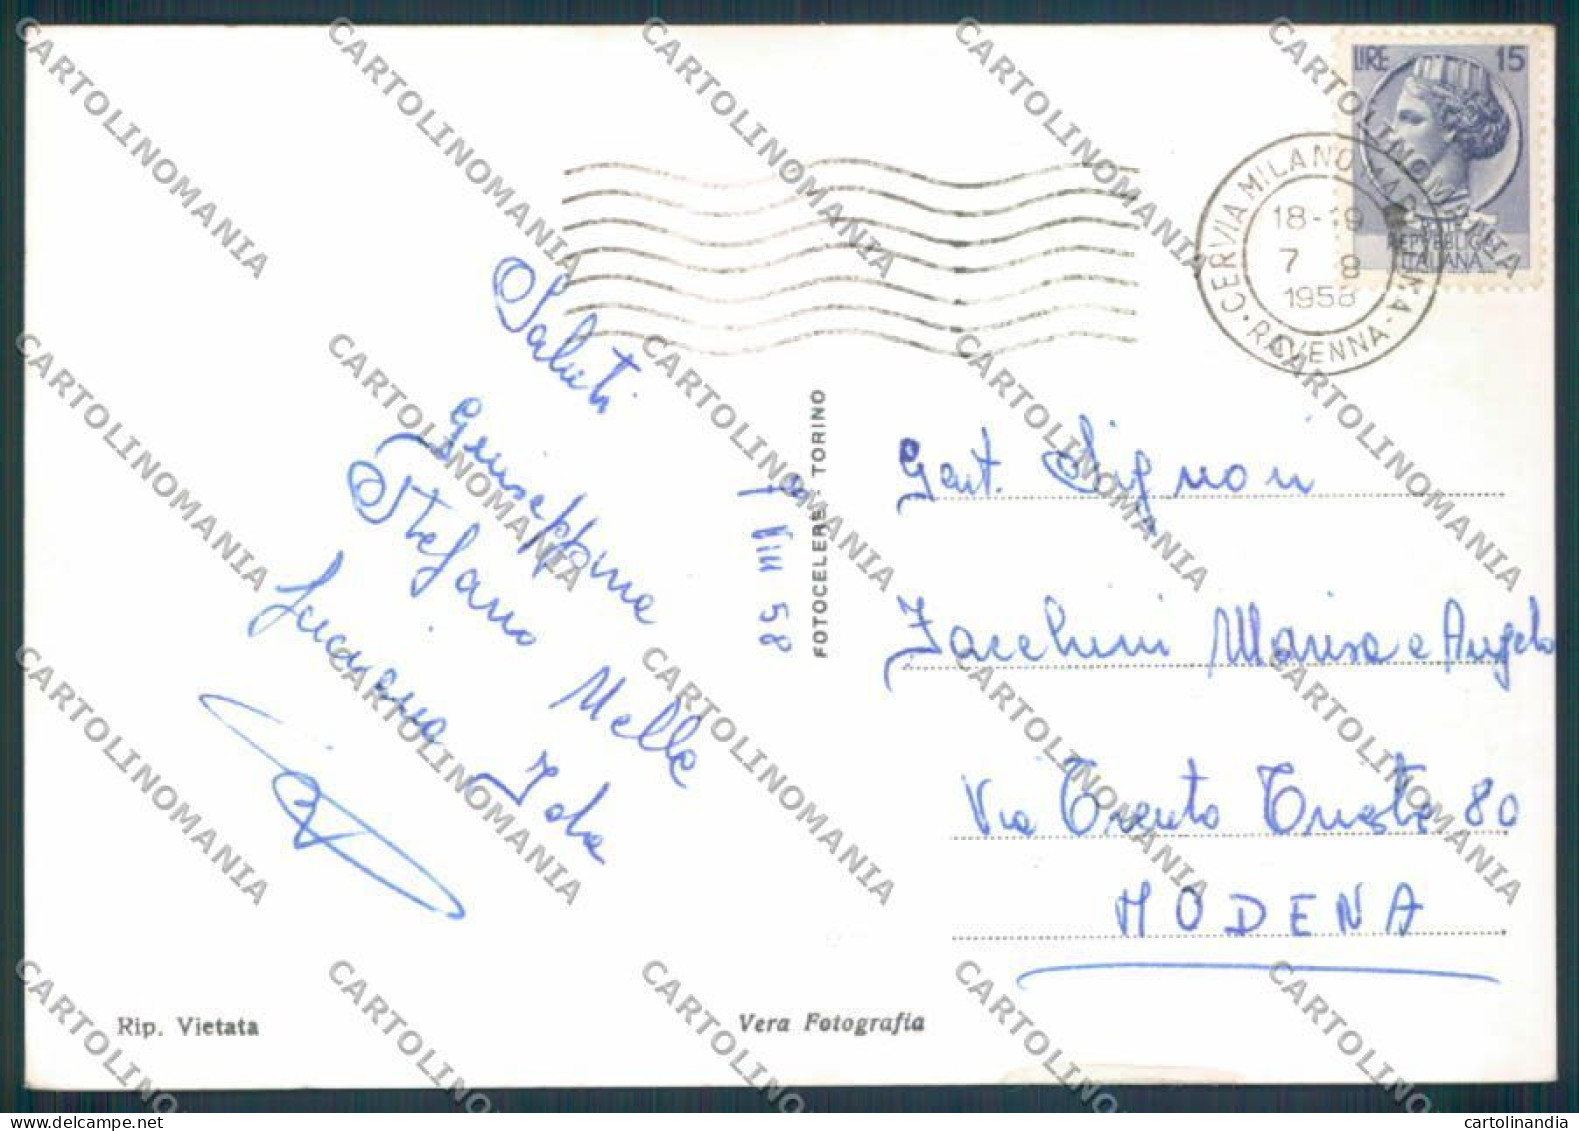 LIRE 15
POSTE
REPVBBLICA
ITALIANA
CERVIA MILANO MARITTIMA
18-19
7 8
1958
· RAVENNA ·
Saluti
Giuseppina
Stefano Melle
Luciana Ida
7 VIII 58
FOTOCELERE - TORINO
Gent. Signori
Zacchini Marisa e Angelo
Via Trento Trieste 80
MODENA
Rip. Vietata
Vera Fotografia
CARTOLINOMANIA
cartolinandia